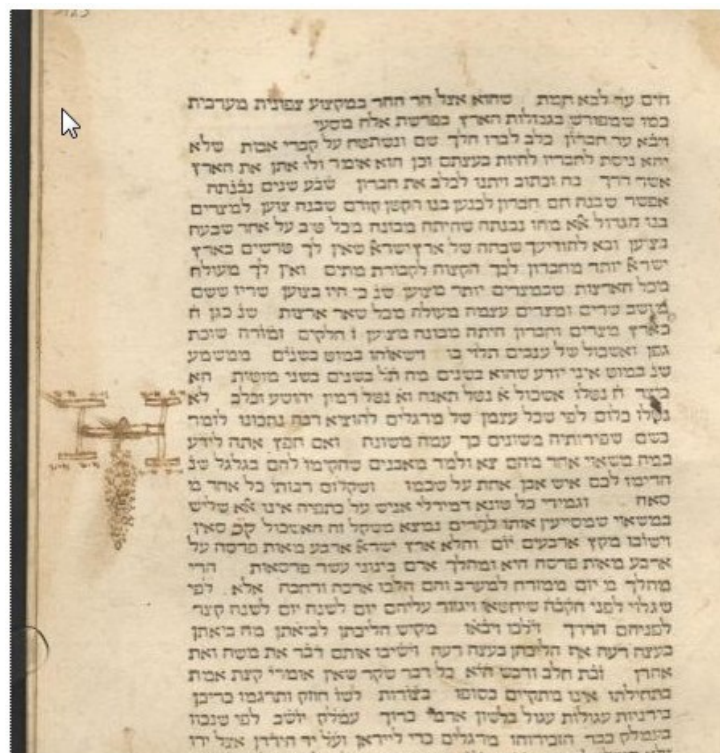 חים עד לבא חמת שהוא אצל הר ההר במקצוע צפונית מערבית
כמו שמפורש בגבולות הארץ בפרשת אלה מסעי
ויבא עד חברון כלב לבדו הלך שם ונשתטח על קברי אבות שלא
יהא ניסת לחבריו להיות בעצתם וכן הוא אומר ולו אתן את הארץ
אשר דרך בה וכתוב ויתנו לכלב את חברון שבע שנים נבנתה
אפשר שבנה חם חברון לכנען בנו הקטן קודם שבנה צוען למצרים
בנו הגדול אא מהו נבנתה שהיתה מבונה מכל טוב על אחד שבעה
בצוען ובא להודיעך שבחה של ארץ ישרא שאין לך טרשים בארץ
ישרא יותר מחברון לכך הקצוה לקבורת מתים ואין לך מעולה
מכל הארצות שבמצרים יותר מצוען שנ כי היו בצוען שריו ששם
מושב שרים ומצרים עצמה מעולה מכל שאר ארצות שנ כגן ה
כארץ מצרים וחברון היתה מבונה מצוען ז חלקים וזמורה שוכת
גפן ואשכול של ענבים תלוי בו וישאוהו במוט בשנים ממשמע
שנ במוט איני יודע שהוא בשנים מה תל בשנים בשני מוטות הא
כיצד ח נטלו אשכול א נטל תאנה וא נטל רמון יהושע וכלב לא
נטלו כלום לפי שכל עצמן של מרגלים להוציא דבה נתכונו לומר
כשם שפירותיה משונים כך עמה משונה ואם חפץ אתה לידע
כמה משאוי אחד מהם צא ולמד מאבנים שהקימו להם בגלגל שנ
הרימו לכם איש אבן אחת על שכמו ושקלום רבותי כל אחד מ
סאה וגמירי כל טונא דמידלי אניש על כתפיה אינו אא שליש
במשאוי שמסייעין אותו להרים נמצא משקל זה האשכול קכ סאין
וישובו מקץ ארבעים יום והלא ארץ ישרא ארבע מאות פרסה על
ארבע מאות פרסה היא ומהלך אדם בינוני עשר פרסאות הרי
מהלך מ יום ממזרח למערב והם הלכו ארכה ורחבה אלא לפי
שגלוי לפני הקבה שיחטאו ויגזור עליהם יום לשנה יום לשנה קצר
לפניהם הדרך וילכו ויבאו מקיש הליכתן לביאתן מה ביאתן
בעצה רעה אף הליכתן בעצה רעה וישיבו אותם דבר את משה ואת
אהרן זבת חלב ודבש היא כל דבר שקר שאין אומרי קצת אמת
בתחילתו אינו מתקיים בסופו בצורות לשו חוזק ותרגמו כריכן
בירניות עגולות עגול בלשון ארמי כרוך עמלק יושב לפי שנכוו
בעמלק כבר הזכירוהו מרגלים כדי ליידאן ועל יד הירדן אצל ירד